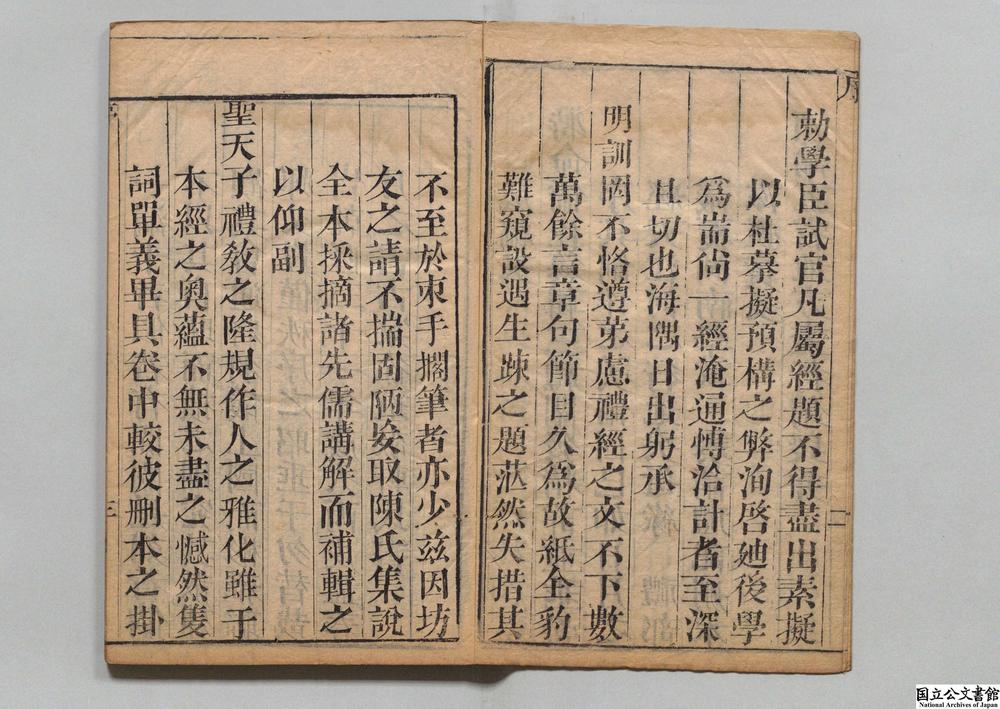 序
勅學臣試官凡屬經題不得盡出素擬
以杜摹擬預構之弊洵啓廸後學
爲耑尚一經淹通博洽計者至深
且切也海隅日出躬承
明訓罔不恪遵苐慮禮經之文不下數
萬餘言章句節目久爲故紙全豹
難窺設遇生疎之題茫然失措其
二
不至於束手擱筆者亦少兹因坊
友之請不揣固陋妄取陳氏集說
全本採摘諸先儒講解而補輯之
以仰副
聖天子禮教之隆規作人之雅化雖于
本經之奥蘊不無未盡之憾然隻
詞單義畢具卷中較彼刪本之掛
三
国立公文書館
National Archives of Japan